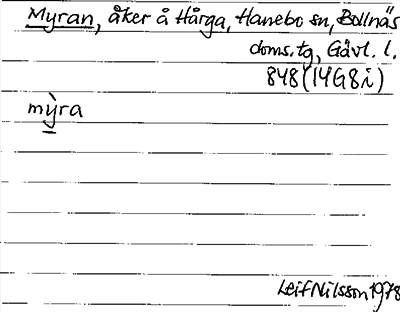 Myran, åker å Hårga, Hanebo sn, Bollnäs
doms.tg, Gävl. l.
848 (14G8i)
mỳra
Leif Nilsson 1978